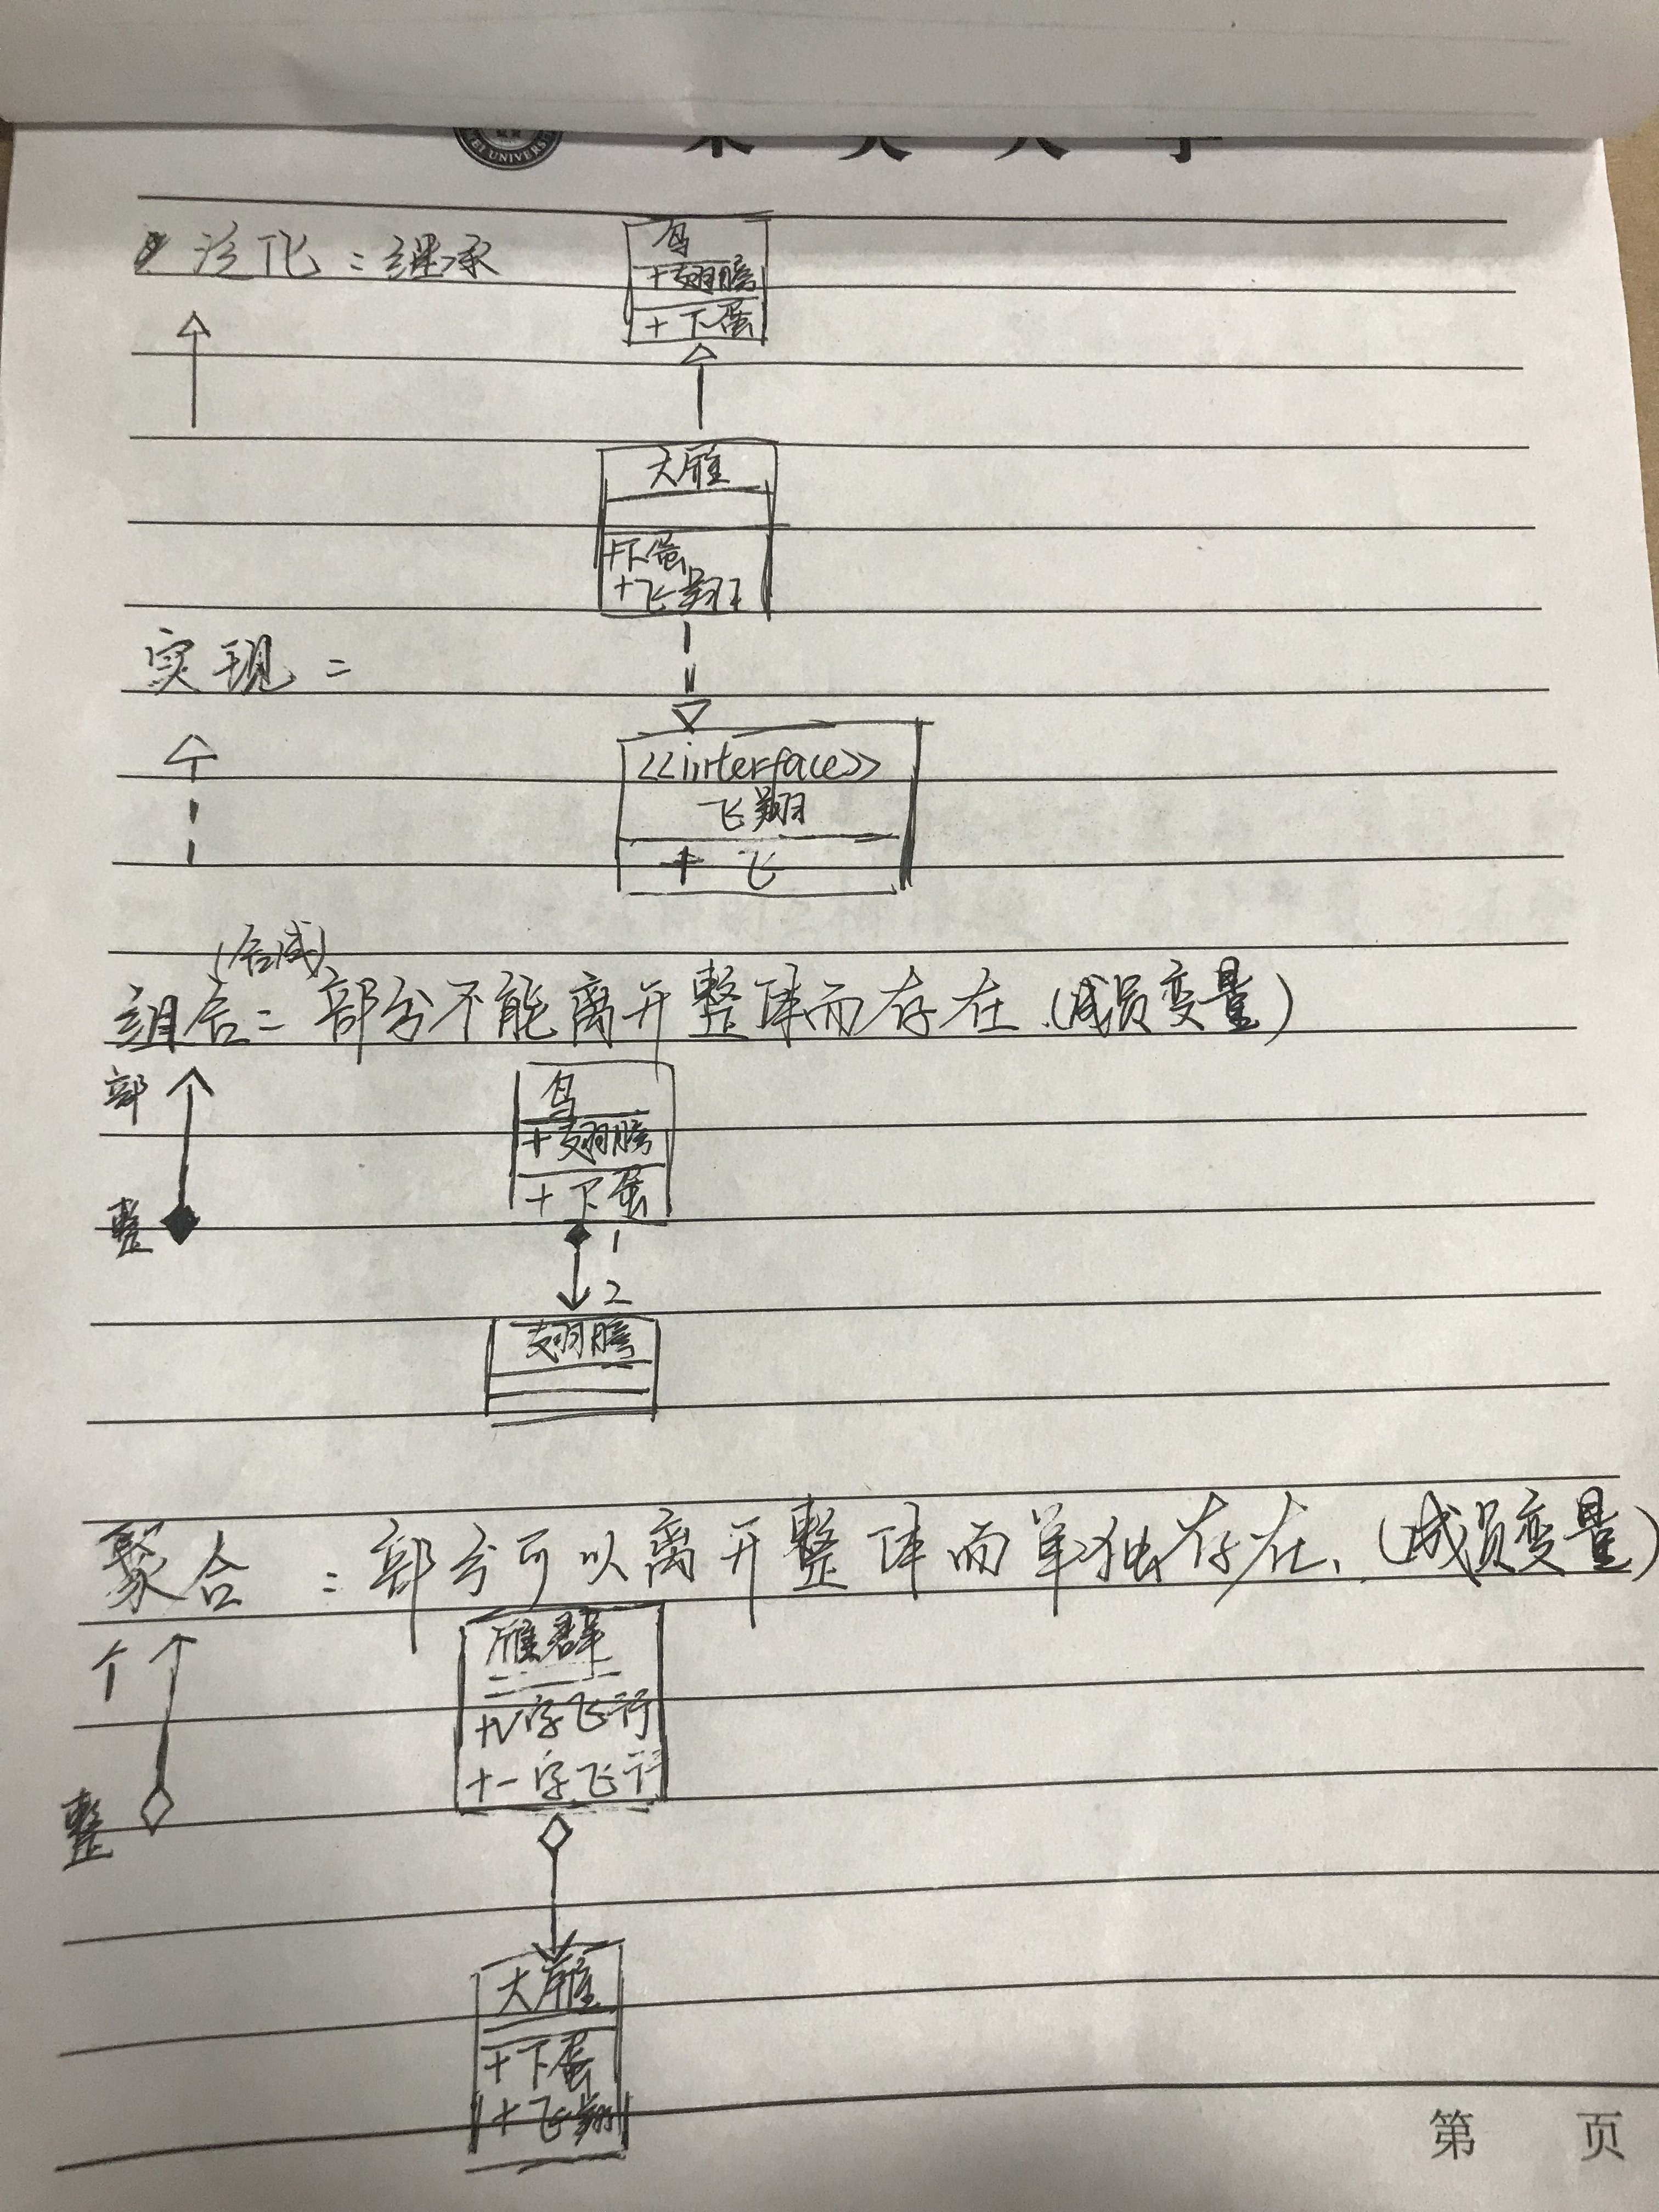 泛化：继承
鸟
+翅膀
+下蛋
大雁
+下蛋
+飞翔
实现：
<<interface>>
飞翔
+ 飞
(合成)
组合：部分不能离开整体而存在.(成员变量)
部
整
鸟
+翅膀
+下蛋
1
2
翅膀
聚合：部分可以离开整体而单独存在.(成员变量)
个
整
雁群
+V字飞行
+一字飞行
大雁
+下蛋
+飞翔
第 页